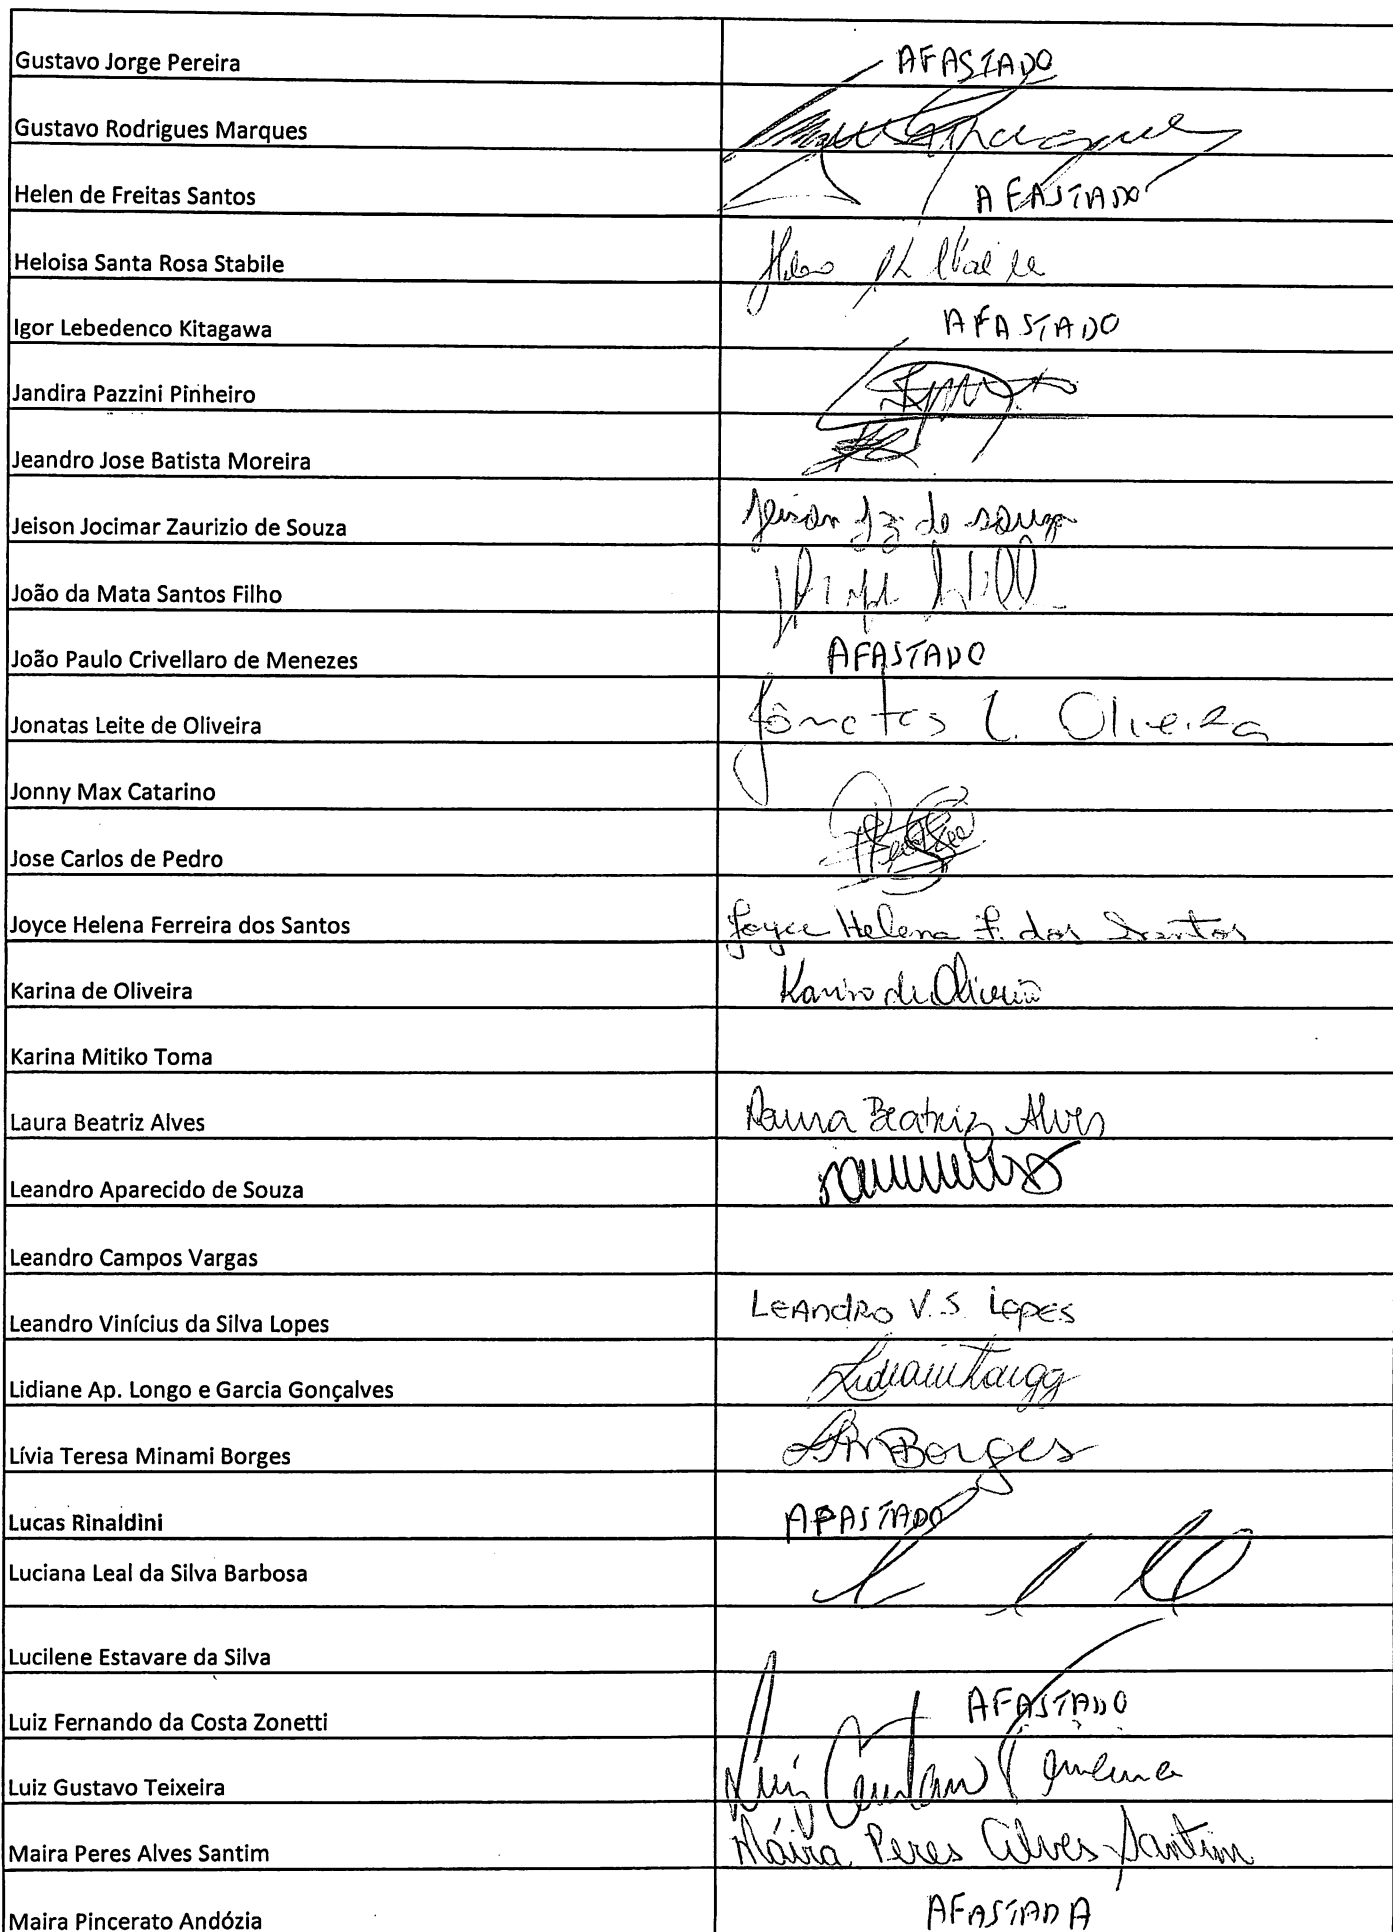 Gustavo Jorge Pereira AFASTADO
Gustavo Rodrigues Marques
Helen de Freitas Santos AFASTADO
Heloisa Santa Rosa Stabile
Igor Lebedenco Kitagawa AFASTADO
Jandira Pazzini Pinheiro
Jeandro Jose Batista Moreira
Jeison Jocimar Zaurizio de Souza Jeison J z de souza
João da Mata Santos Filho
João Paulo Crivellaro de Menezes AFASTADO
Jonatas Leite de Oliveira Jônatas L. Oliveira
Jonny Max Catarino
Jose Carlos de Pedro
Joyce Helena Ferreira dos Santos Joyce Helena F. dos Santos
Karina de Oliveira Karina de Oliveira
Karina Mitiko Toma
Laura Beatriz Alves Laura Beatriz Alves
Leandro Aparecido de Souza
Leandro Campos Vargas
Leandro Vinícius da Silva Lopes LEANDRO V.S. LOPES
Lidiane Ap. Longo e Garcia Gonçalves
Lívia Teresa Minami Borges Borges
Lucas Rinaldini AFASTADO
Luciana Leal da Silva Barbosa
Lucilene Estavare da Silva
Luiz Fernando da Costa Zonetti AFASTADO
Luiz Gustavo Teixeira Luiz Gustavo
Maira Peres Alves Santim Maíra Peres Alves Santim
Maira Pincerato Andózia AFASTADA